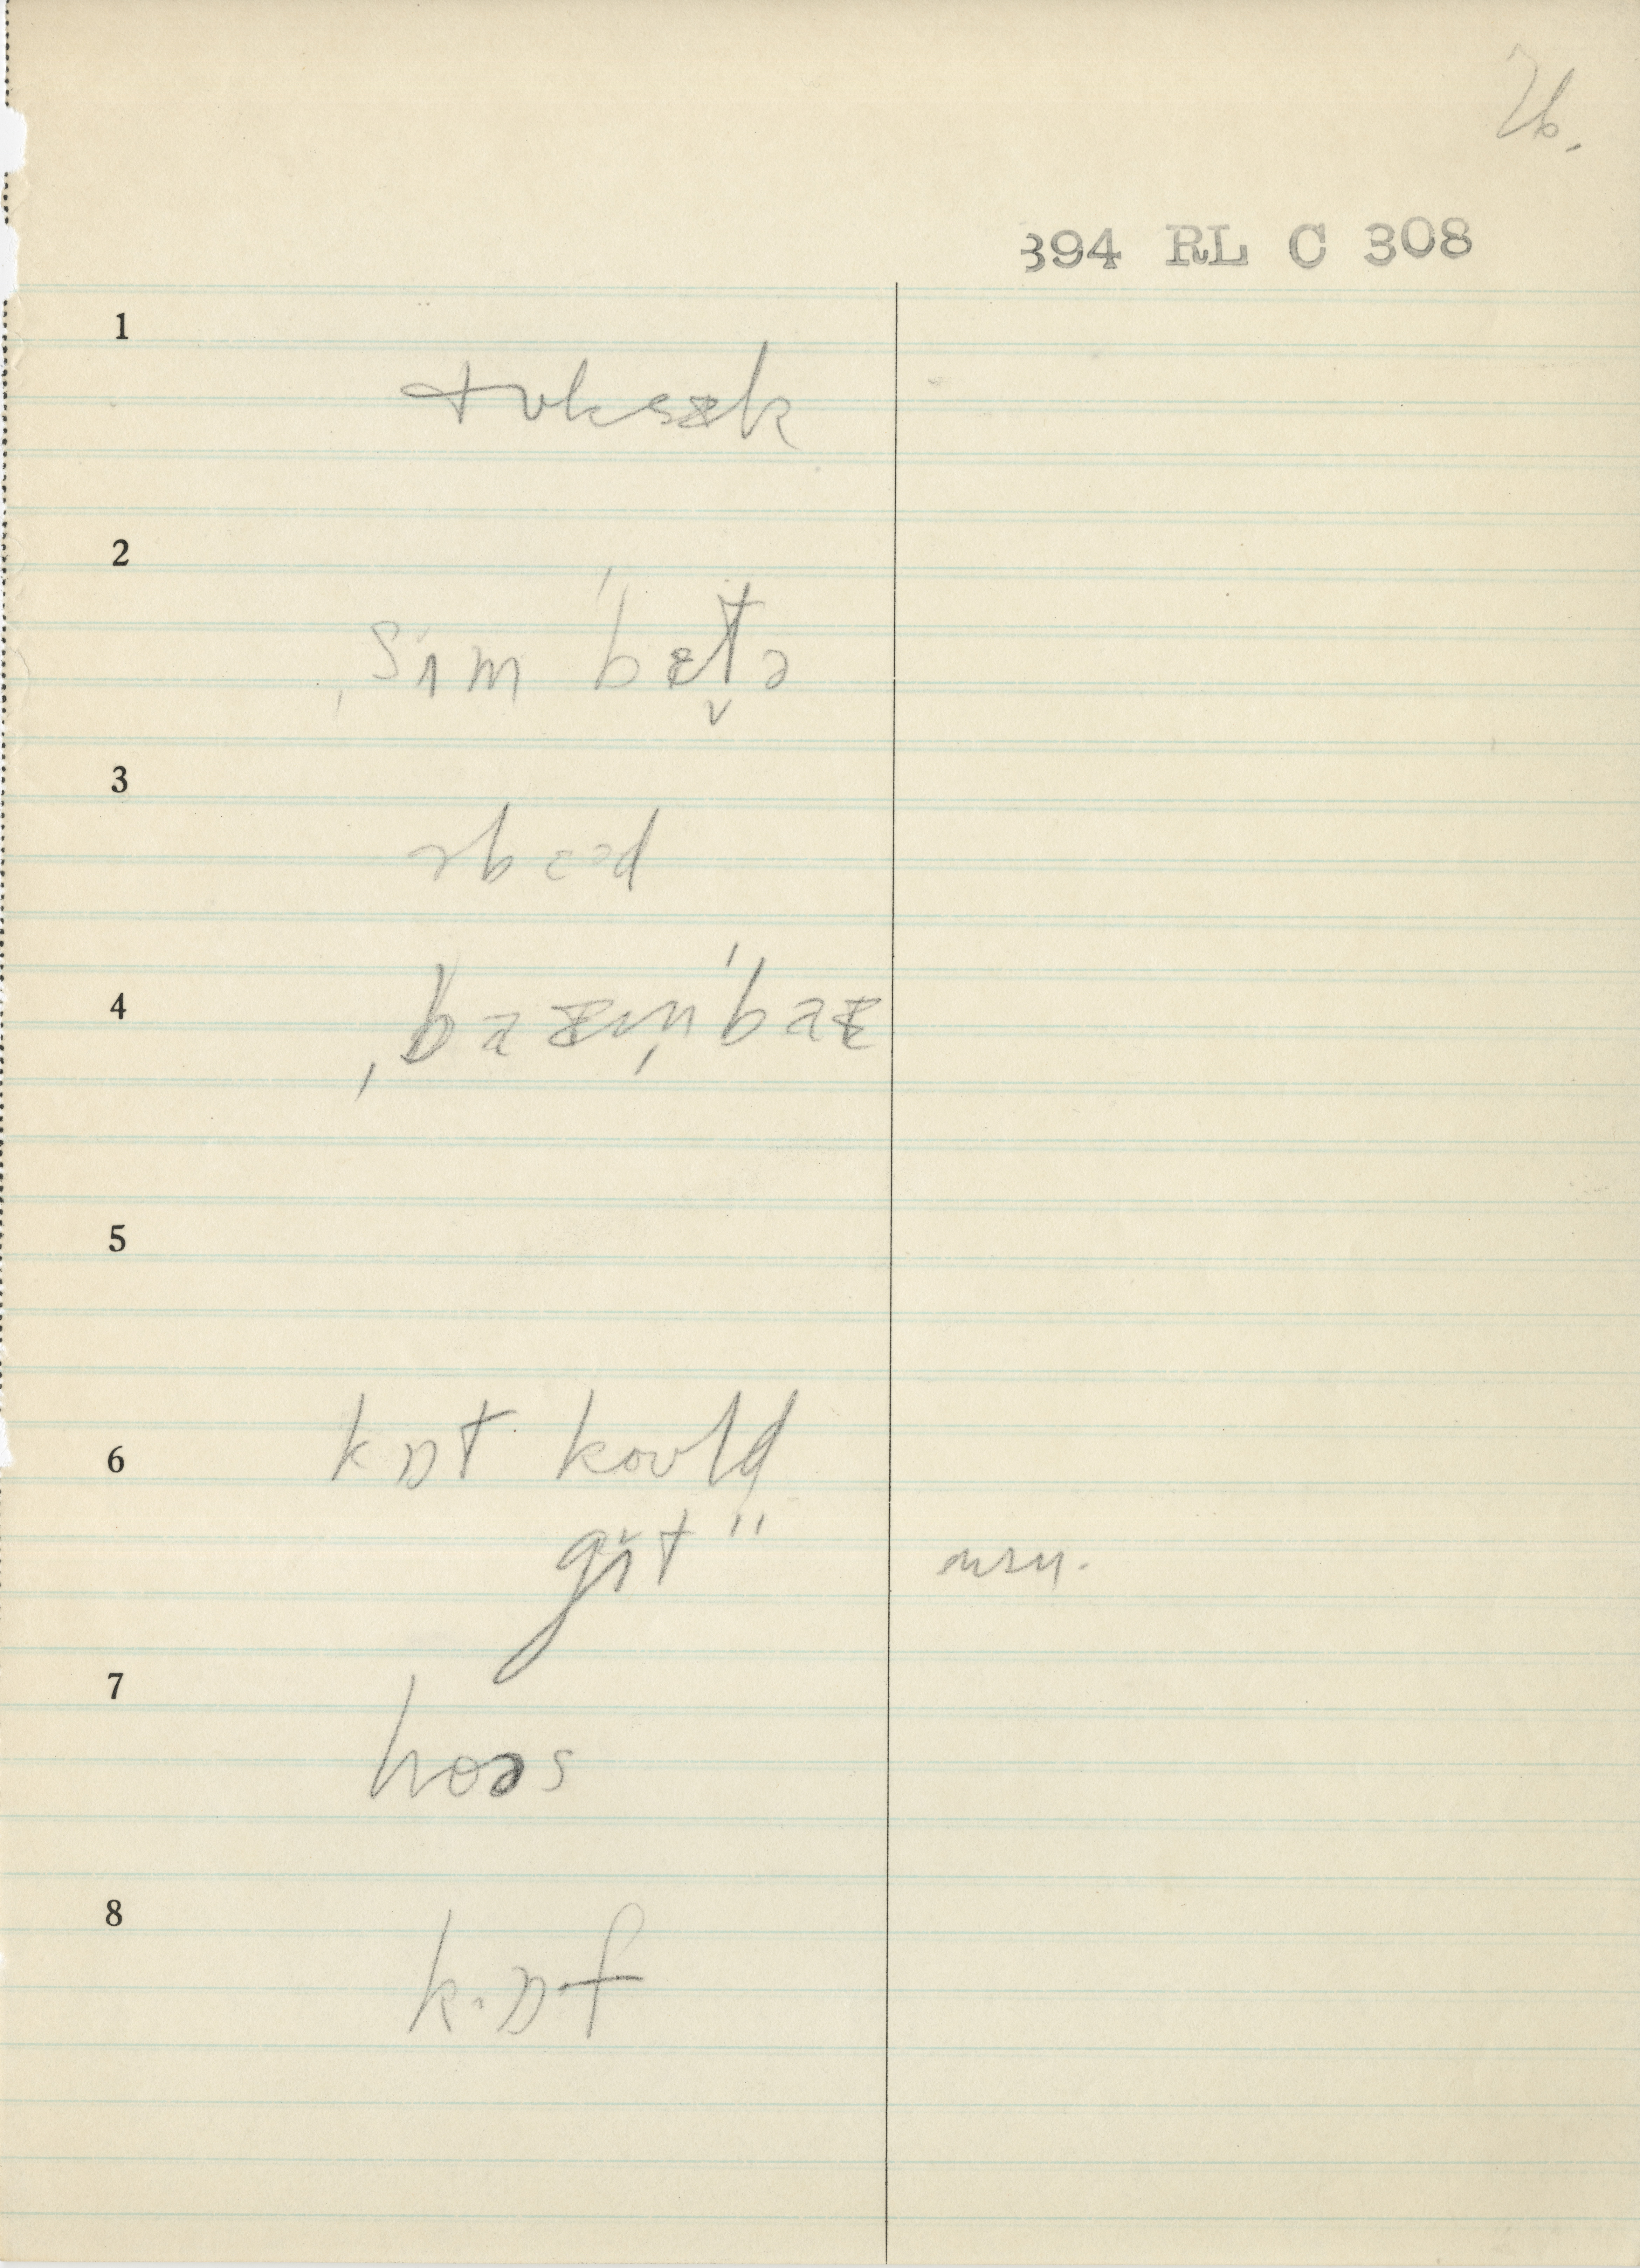 76.
394 RL C 308
1
tʊksɪk
2
ˌsɪm ˈbɛt̬ə
3
əbɛəd
4
ˌbaɛmˈbaɛ
5
6
kɒt koʊld
gɪt "
7
hoəs
8
k.ɒf